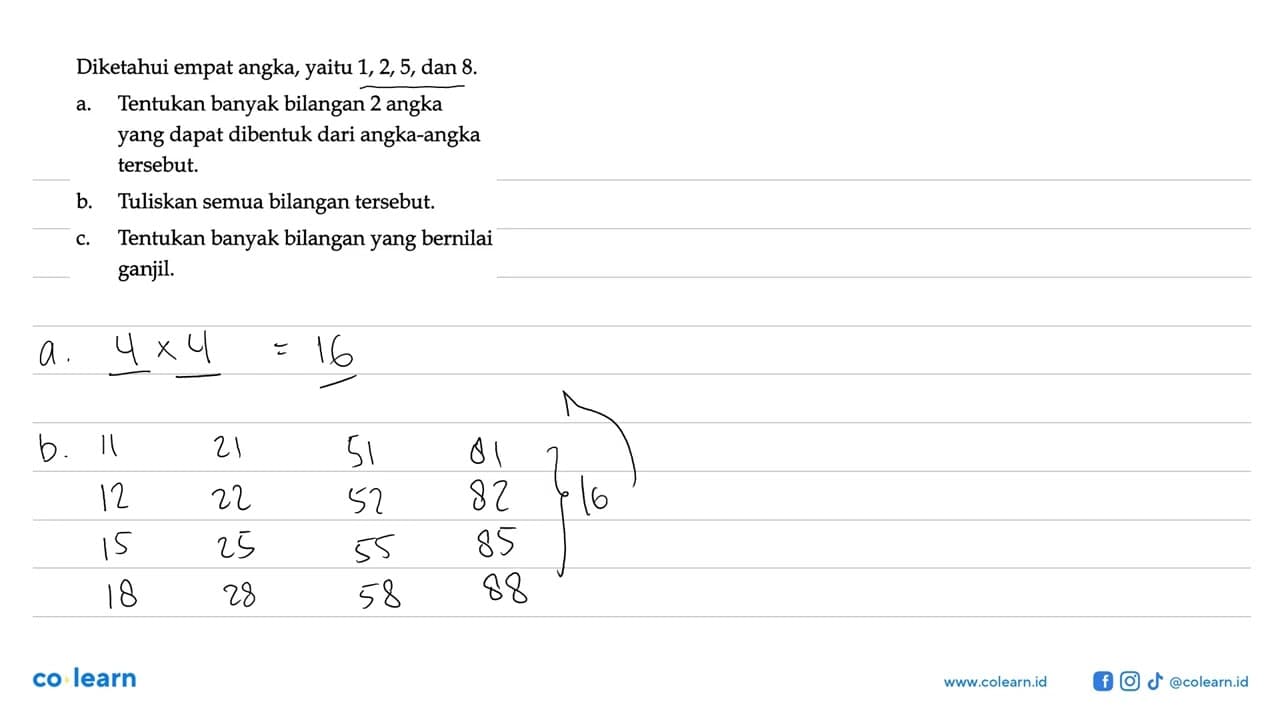 Diketahui empat angka, yaitu 1, 2, 5, dan 8.
a. Tentukan banyak bilangan 2 angka
yang dapat dibentuk dari angka-angka
tersebut.
b. Tuliskan semua bilangan tersebut.
c. Tentukan banyak bilangan yang bernilai
ganjil.
a. 4 × 4 = 16
b. 11 21 51 81
12 22 52 82 } 16
15 25 55 85
18 28 58 88
co learn
www.colearn.id @colearn.id